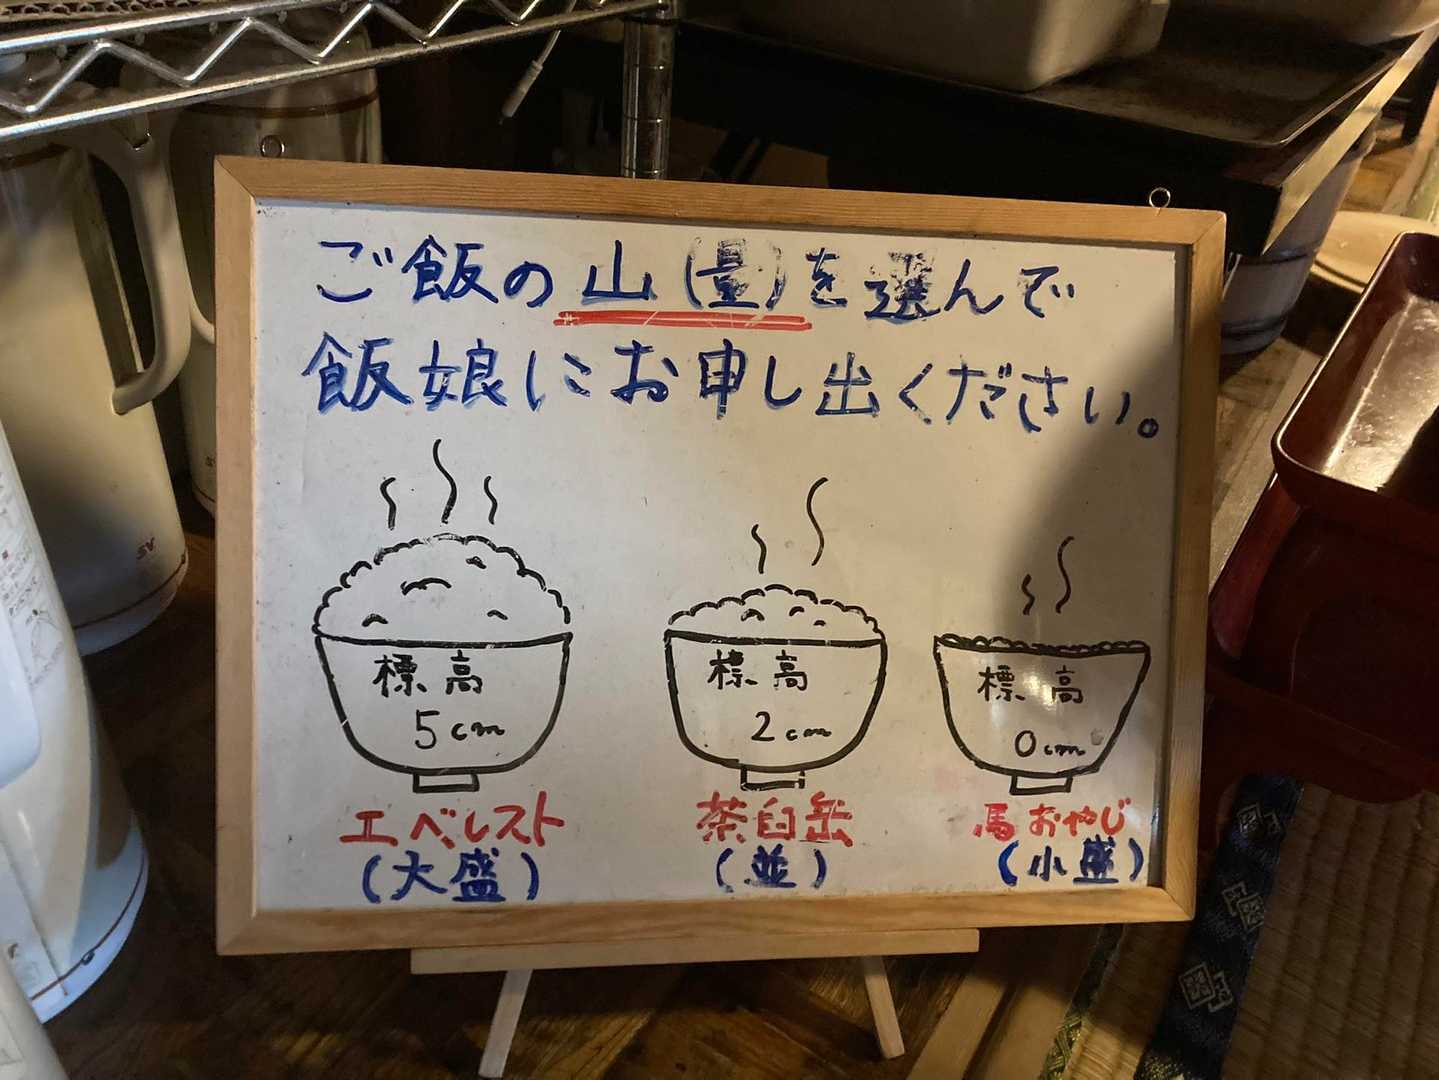 ご飯の山(量)を選んで
飯娘にお申し出ください。
標高
5cm
エベレスト
(大盛)
標高
2cm
茶臼岳
(並)
標高
0cm
馬おやじ
(小盛)
SV